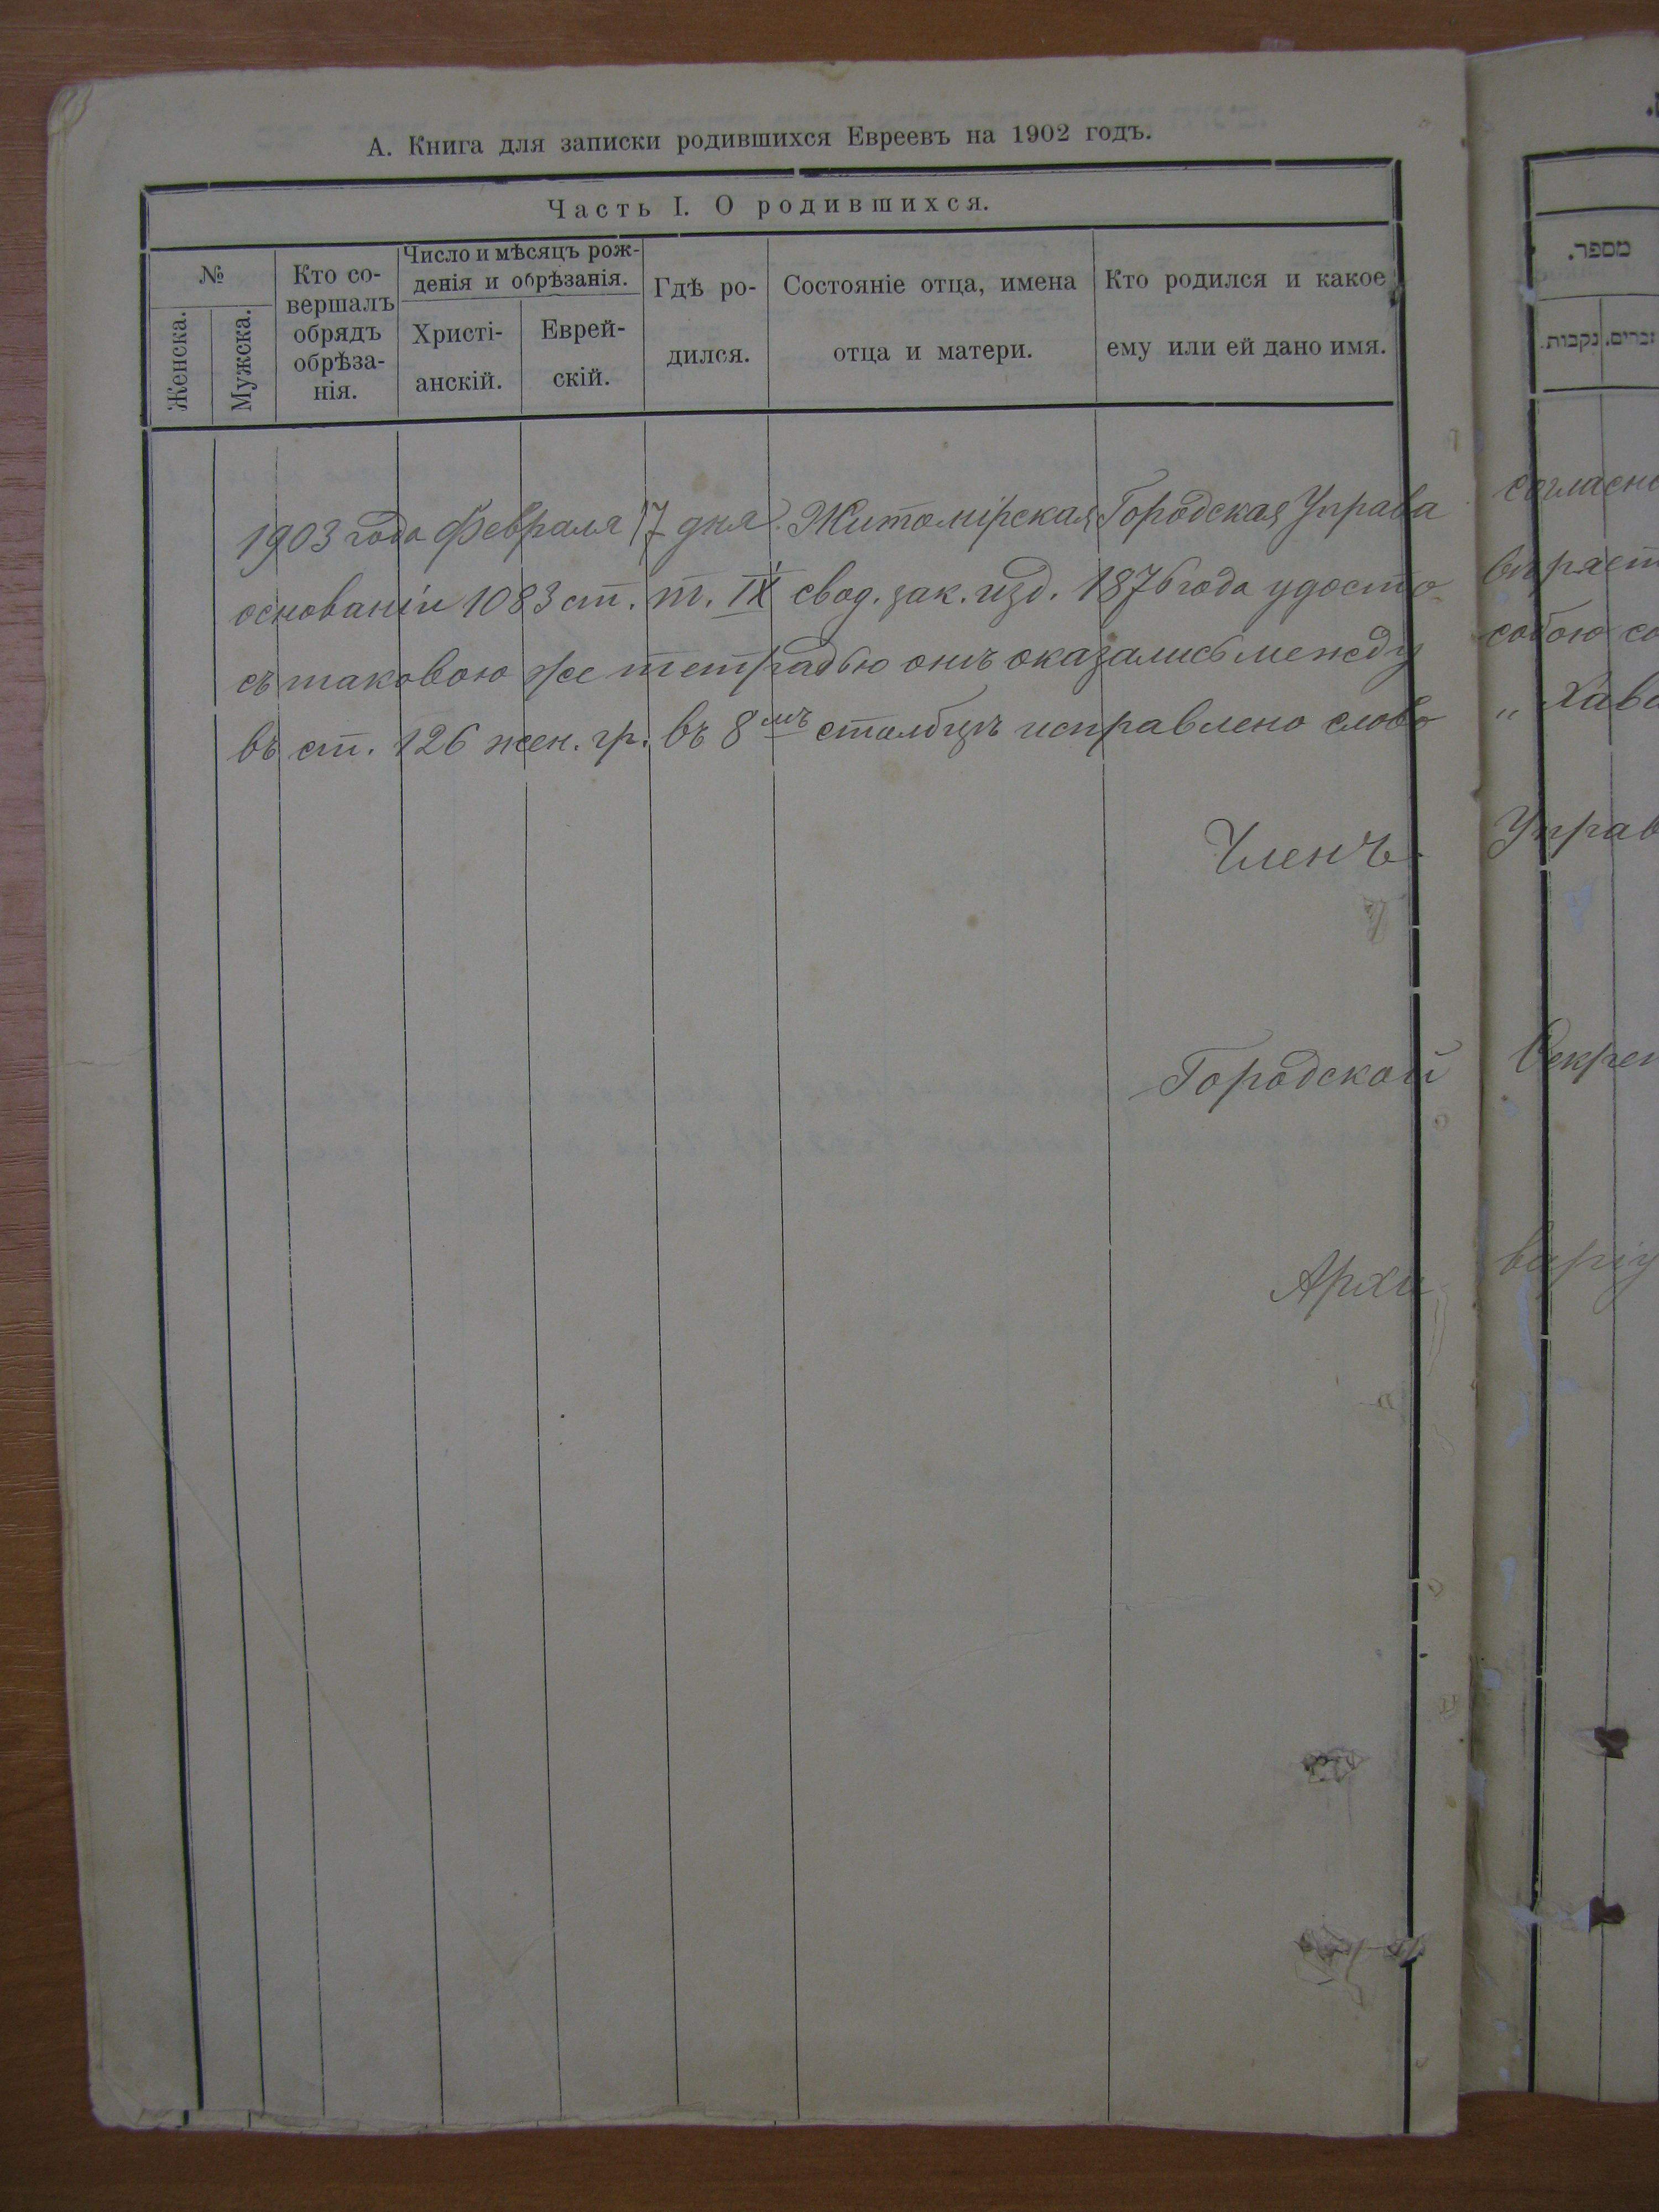 А. Книга для записки родившихся Евреевъ на 1902 годъ.
Часть I. О родившихся.
№
Женска.
Мужска.
Кто со-
вершалъ
обрядъ
обрѣза-
нія.
Число и мѣсяцъ рож-
денія и обрѣзанія.
Христі-
анскій.
Еврей-
скій.
Гдѣ ро-
дился.
Состояніе отца, имена
отца и матери.
Кто родился и какое
ему или ей дано имя.
מספר.
נקבות.
זכרים.
1903 года Февраля 17 дня. Житомірская Городская Управа согласно
основаніи 1083 ст. т. IX свод. зак. изд. 1876 года удосто
съ таковою же тетрадью онѣ оказались между собою со
въ ст. 126 жен. гр. въ 8мъ столбцѣ исправлено слово „Хава
Членъ Управ
Городской Секрет
Архи варіу